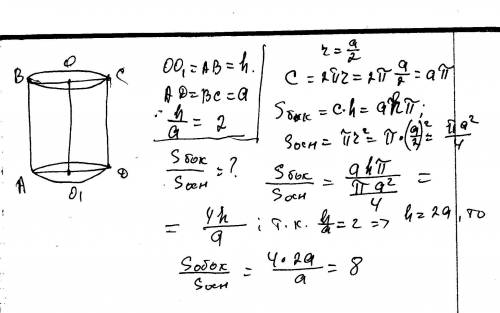 B O C
A D
O₁
OO₁ = AB = h.
AD = BC = a
∴ h/a = 2
Sбок/Sосн = ?
r = a/2
C = 2πr = 2π a/2 = aπ
Sбок = c·h = ahπ;
Sосн = πr² = π·(a/2)² = πa²/4
Sбок/Sосн = ahπ/(πa²/4) =
= 4h/a ; т.к. h/a = 2 => h = 2a, то
Sбок/Sосн = 4·2a/a = 8